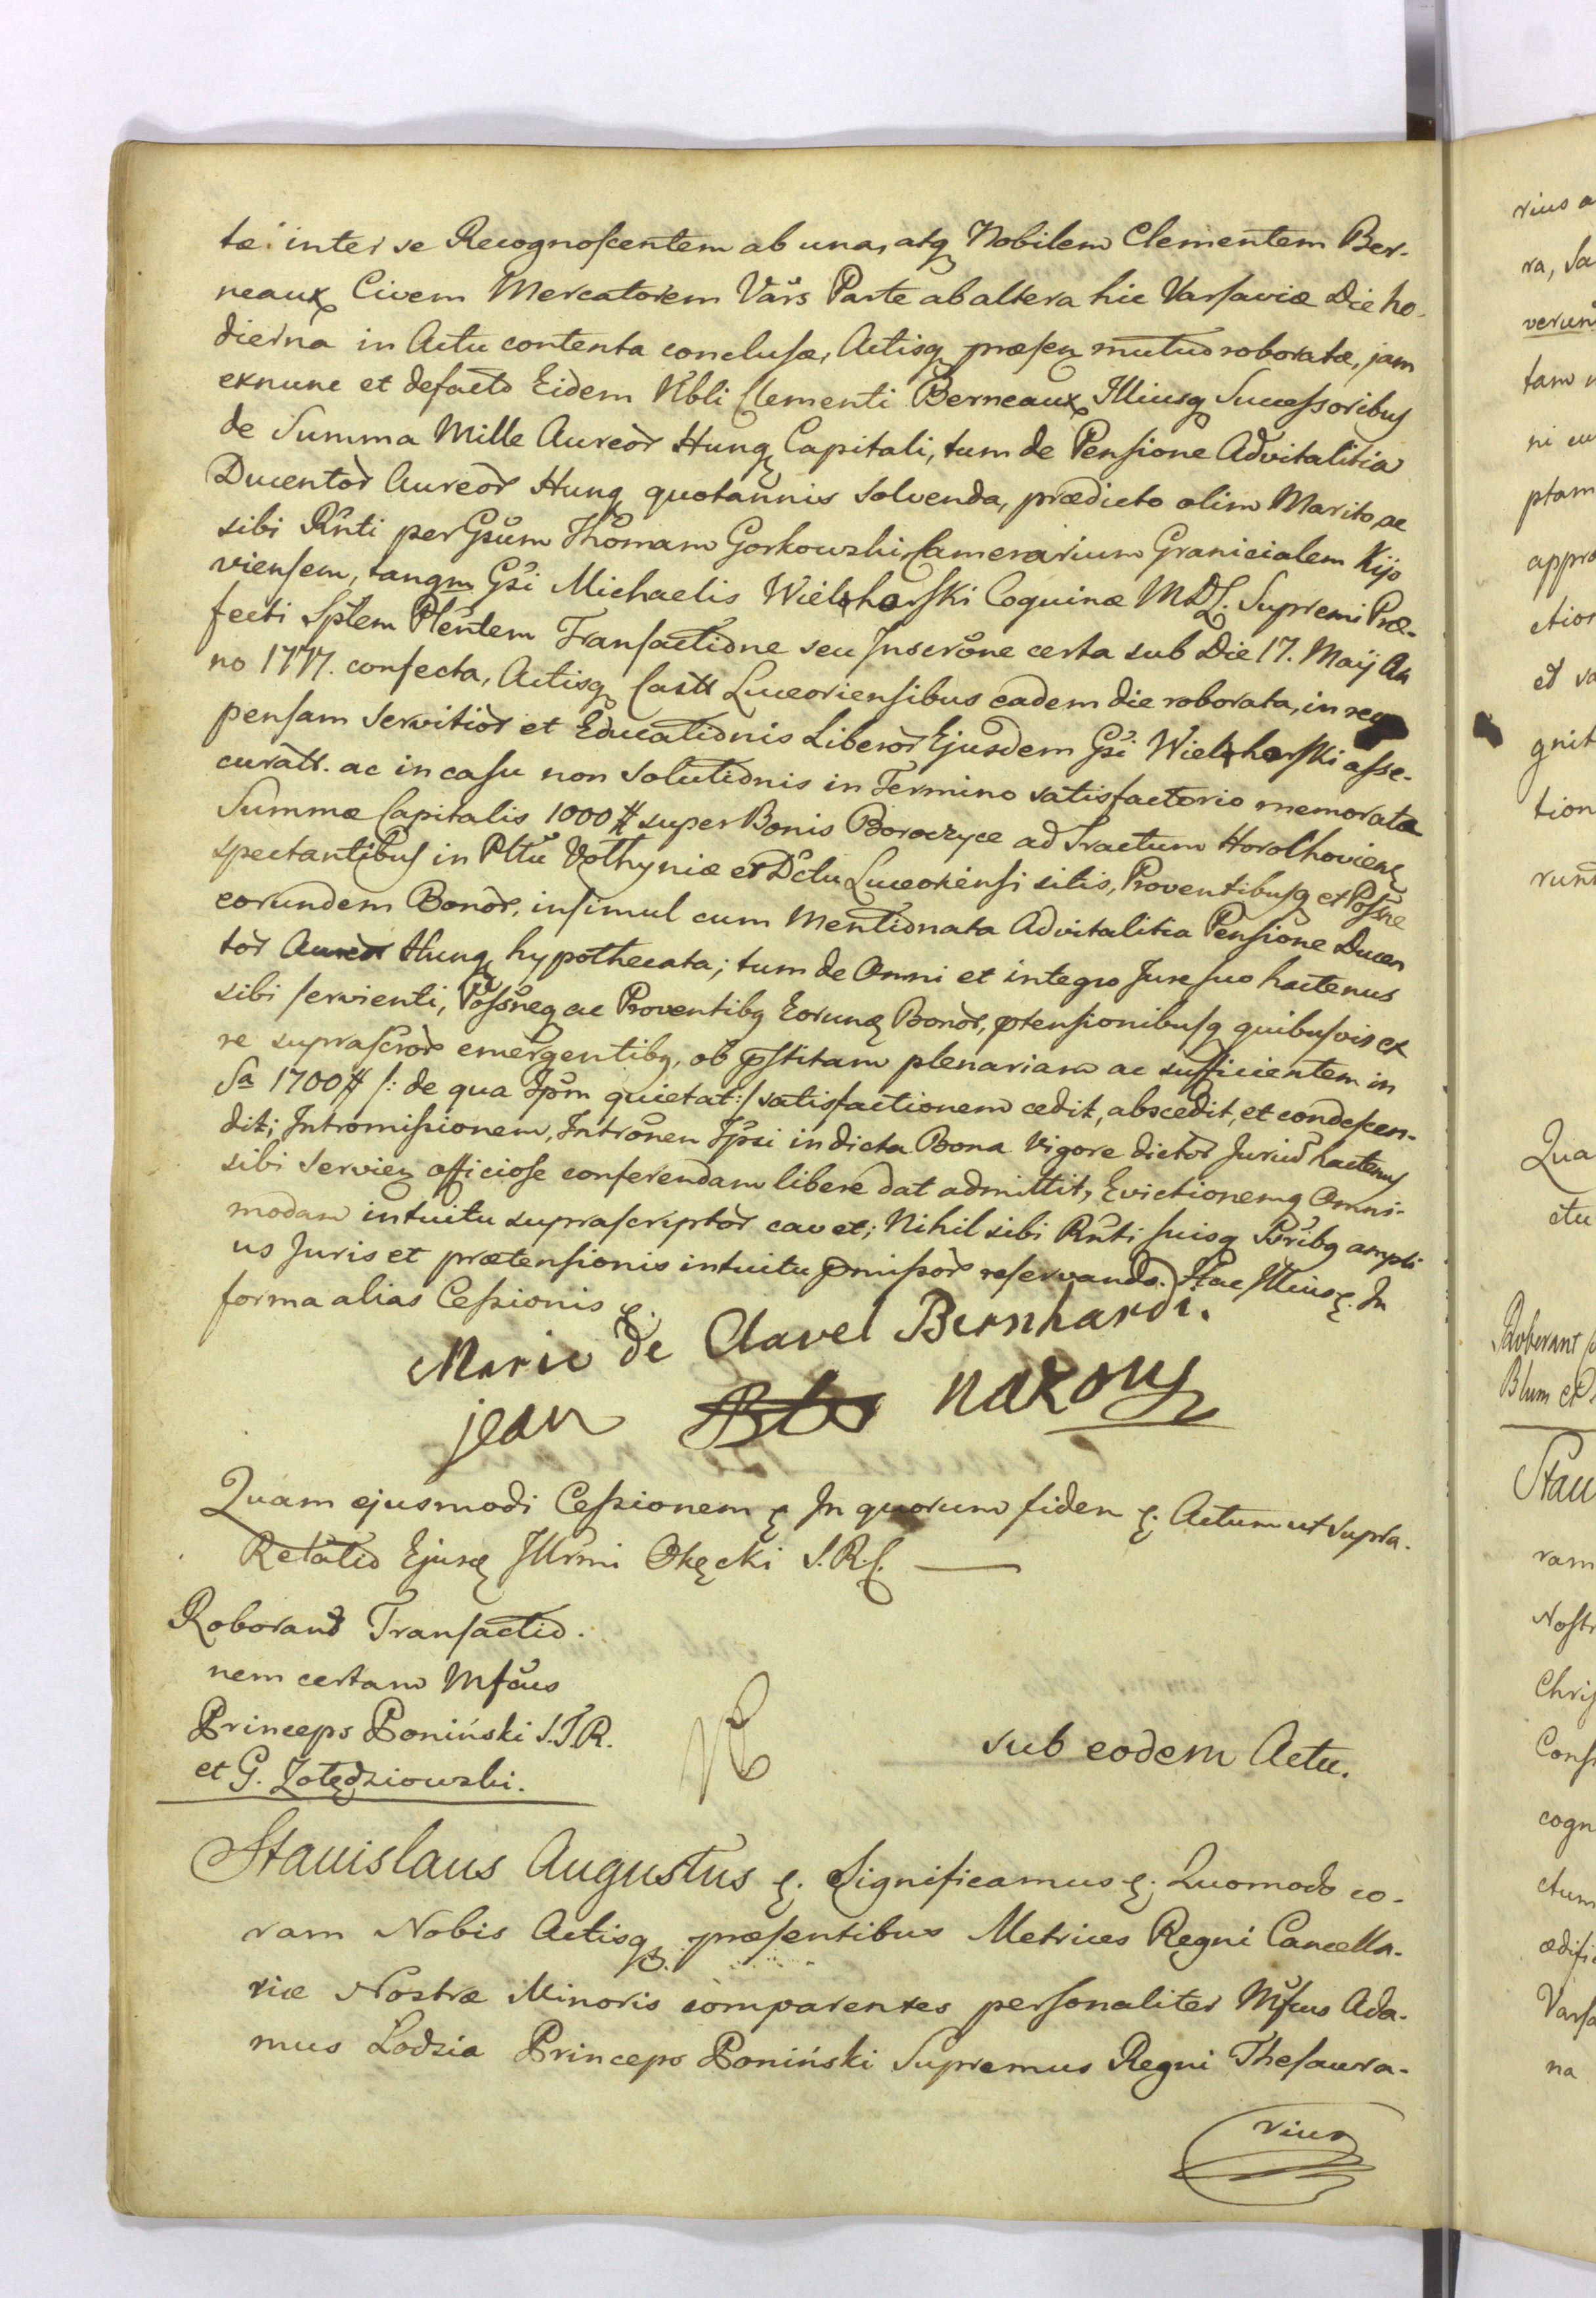 tæ inter se Recognoscentem ab una, atq Nobilem Clementem Ber-
neaux Civem Mercatorem Vars Parte ab altera hic Varsaviæ Die ho-
dierna in Actu contenta conclusæ, Actisq præsen mutuo roboratæ, jam
exnunc et defacto Eidem Nbli Clementi Berneaux Illiusq Successoribus
de Summa Mille Aureor Hung Capitali, tum de Pensione Advitalitia
Ducentor Aureor Hung quotannis solvenda, prædicto olim Marito ac
sibi Rnti per Gsum Thomam Gorkowski Camerarium Granicialem Kijo
viensem, tanqm Gsi Michaelis Wielhorski Coquinæ MDL. Supremi Præ-
fecti Splem Plentem Transactione seu Inscrone certa sub Die 17. Maij An
no 1777. confecta, Actisq Castr Luceoriensibus eadem die roborata, in recom
pensam servitior et Educationis Liberor Ejusdem Gsi Wielhorski asse-
curatt. ac in casu non solutionis in Termino satisfactorio memoratæ
Summæ Capitalis 1000 # super Bonis Boroczyce ad Tractum Horolhoviens
spectantibus in Pltu Volhyniæ et Dctu Luceoriensi sitis, Proventibusq et Possne
eorundem Bonor, insimul cum Mentionata Advitalitia Pensione Ducen
tor Aureor Hung hypothecata; tum de Omni et integro Jure suo hactenus
sibi servienti, Possneq ac Proventibq Eorund Bonor, ptensionibusq quibusvis ex
re suprascror emergentibq, ob pstitam plenariam ac sufficientem in
Sa 1700 # /: de qua Ipsm quietat :/ satisfactionem cedit, abscedit, et condescen-
dit; Intromissionem, Intronen Ipsi in dicta Bona Vigore dictor Jurium hactenus
sibi servien officiose conferendam libere dat admittit, Evictionemq Omni-
modam intuitu suprascriptor cavet; Nihil sibi Rnti suisq Ssribq ampli
us Juris et prætensionis intuitu pmissor reservando. Hac Illius &. In
forma alias Cessionis &.
Marie de Clavel Bernhardi.
jean nazon
Quam ejusmodi Cessionem & In quorum fidem &. Actum ut supra.
Relatio Ejusd Illrmi Okęcki S.R.C.
Roborant Transactio-
nem certam Mfcus
Princeps Poniński S.T.R.
et G. Żołędziowski.
sub eodem Actu.
Stanislaus Augustus &. Significamus &. Quomodo co-
ram Nobis Actisq præsentibus Metrices Regni Cancella-
riæ Nostræ Minoris comparentes personaliter Mfcus Ada-
mus Lodzia Princeps Poniński Supremus Regni Thesaura-
rius